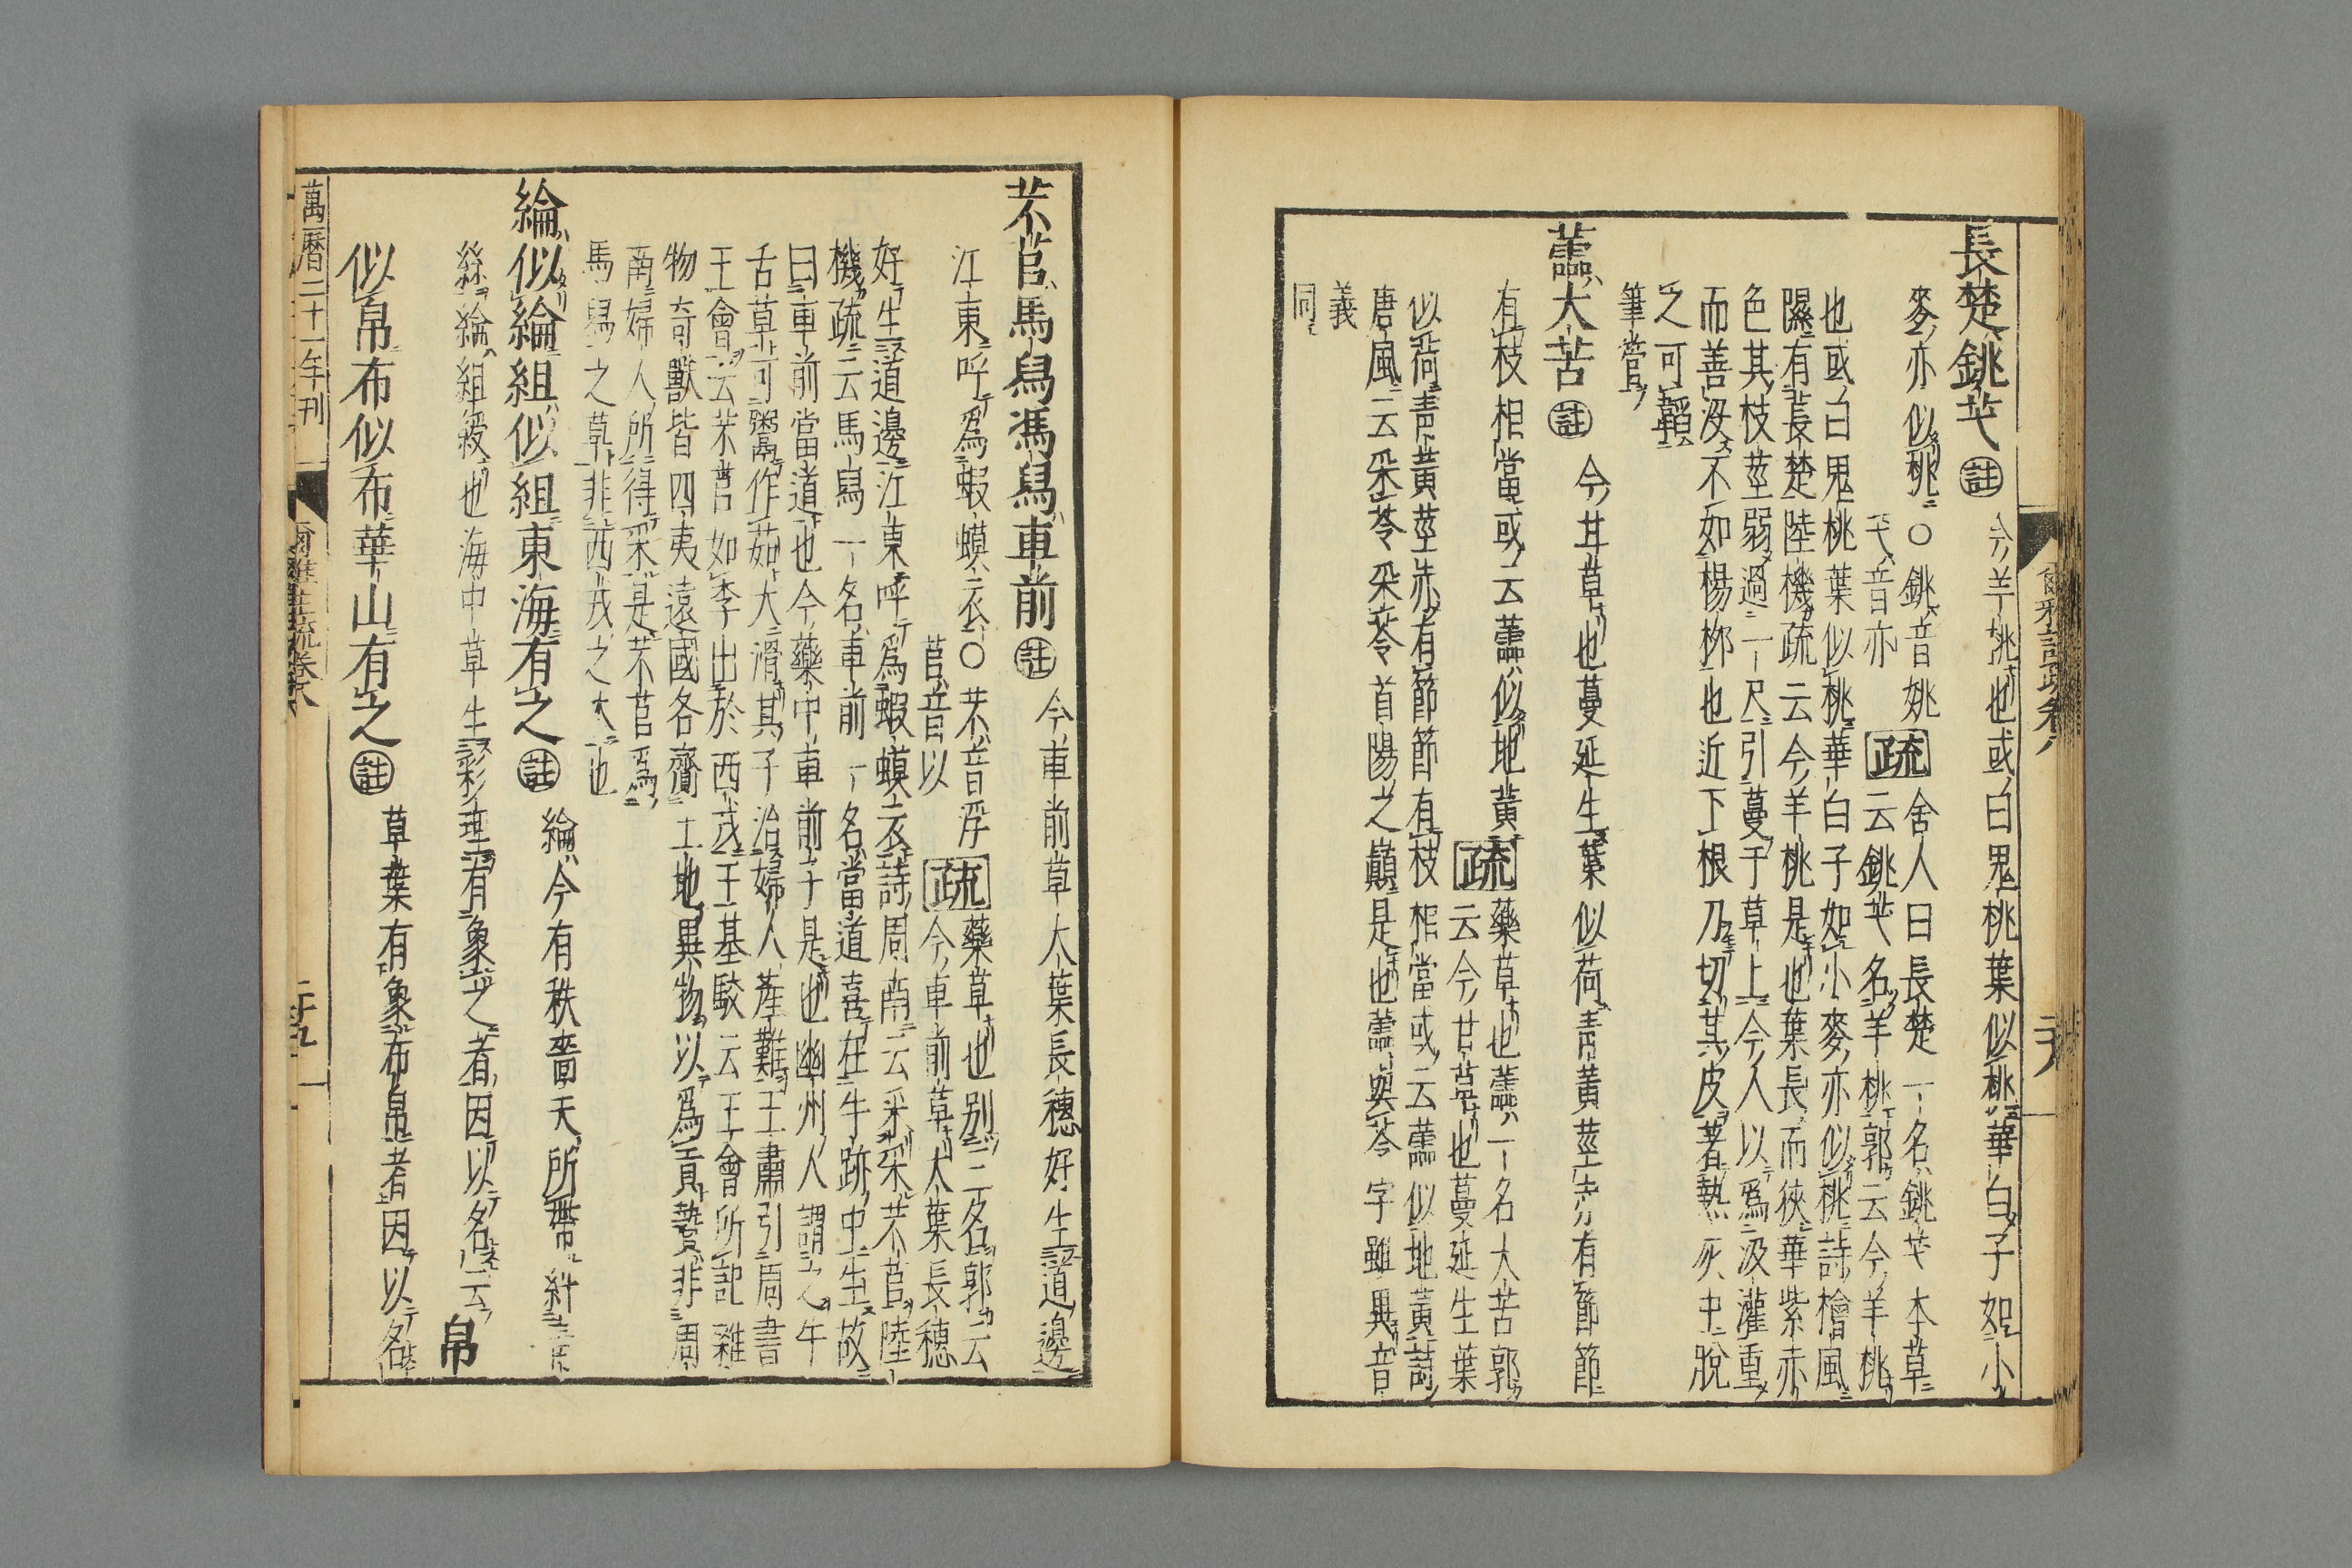 長楚銚芅 註 今羊桃也或曰鬼桃葉似桃華白子如小
麥亦似桃○銚音姚
芅音亦
疏
舍人曰長楚一名銚芅本草
云銚芅名羊桃郭云今羊桃
也或曰鬼桃葉似桃華白子如小麥亦似桃詩檜風
隰有萇楚陸機疏云今羊桃是也葉長而狹華紫赤
色其枝莖弱過一尺引蔓于草上今人以爲汲灌重
而善沒不如楊柳也近下根刀切其皮著熱灰中脫
之可韜
筆管
蘦大苦 註 今甘草也蔓延生葉似荷青黃莖赤有節節
有枝相當或云蘦似地黃
疏
藥草也蘦一名大苦郭
云今甘草也蔓延生葉
似荷青黃莖赤有節節有枝相當或云蘦似地黃詩
唐風云采苓采苓首陽之巔是也蘦與苓字雖異音
義
同
爾雅註疏卷八
芣苢馬舄馬舄車前 註 今車前草大葉長穗好生道邊
江東呼爲蝦蟆衣○芣音浮
苢音以
疏
藥草也別三名郭云
今車前草大葉長穗
好生道邊江東呼爲蝦蟆衣詩周南云采采芣苢陸
機疏云馬舄一名車前一名當道喜在牛跡中生故
曰車前當道也今藥中車前子是也幽州人謂之牛
舌草可鬻作茹大滑其子治婦人產難王肅引周書
王會云芣苢如李出於西戎王基駮云王會所記雜
物奇獸皆四夷遠國各齎土地異物以爲貢贄非周
南婦人所得采是芣苢爲
馬舄之草非西戎之木也
綸似綸組似組東海有之 註 綸今有秩嗇夫所帶糾青
絲綸組綬也海中草生彩理有象之者因以名云 帛
似帛布似布華山有之 註 草葉有象布帛者因以名
萬曆二十一年刊
爾雅註疏卷八
二十九